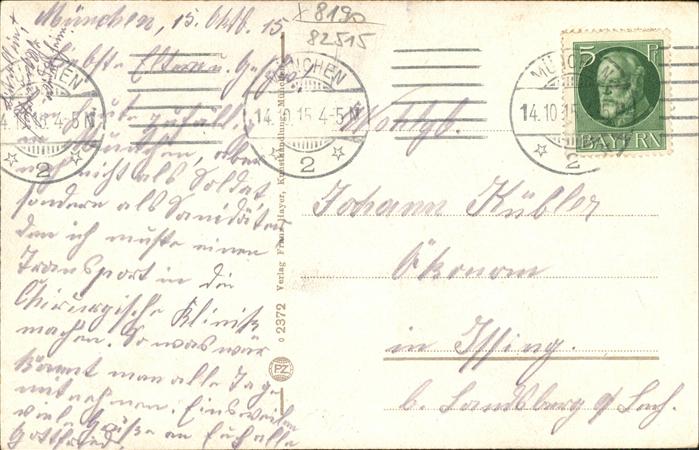 München, 15. Okt. 15
Liebste Eltern u. Geschw.
heute zufällig in
München, aber
nicht als Soldat
sondern als Sanitäter
den ich mußte einen
Transport in die
Chirurgische Klinik
machen. So was wär
könnt man alle Tage
mitnehmen. Einsweilen
viele Grüße an Euch alle
Gottfried.
x 8190
82515
MÜNCHEN
14.10.15 4-5 N
2
MÜNCHEN
14.10.15
2
14.10.15 4-5 N
2
5 Pf
BAYERN
Wohlgb.
Johann Kübler
Ökonom
in Issing.
b. Landsberg a/Lech.
o 2372 Verlag Franz Mayer, Kunsthandlung, München
PZ